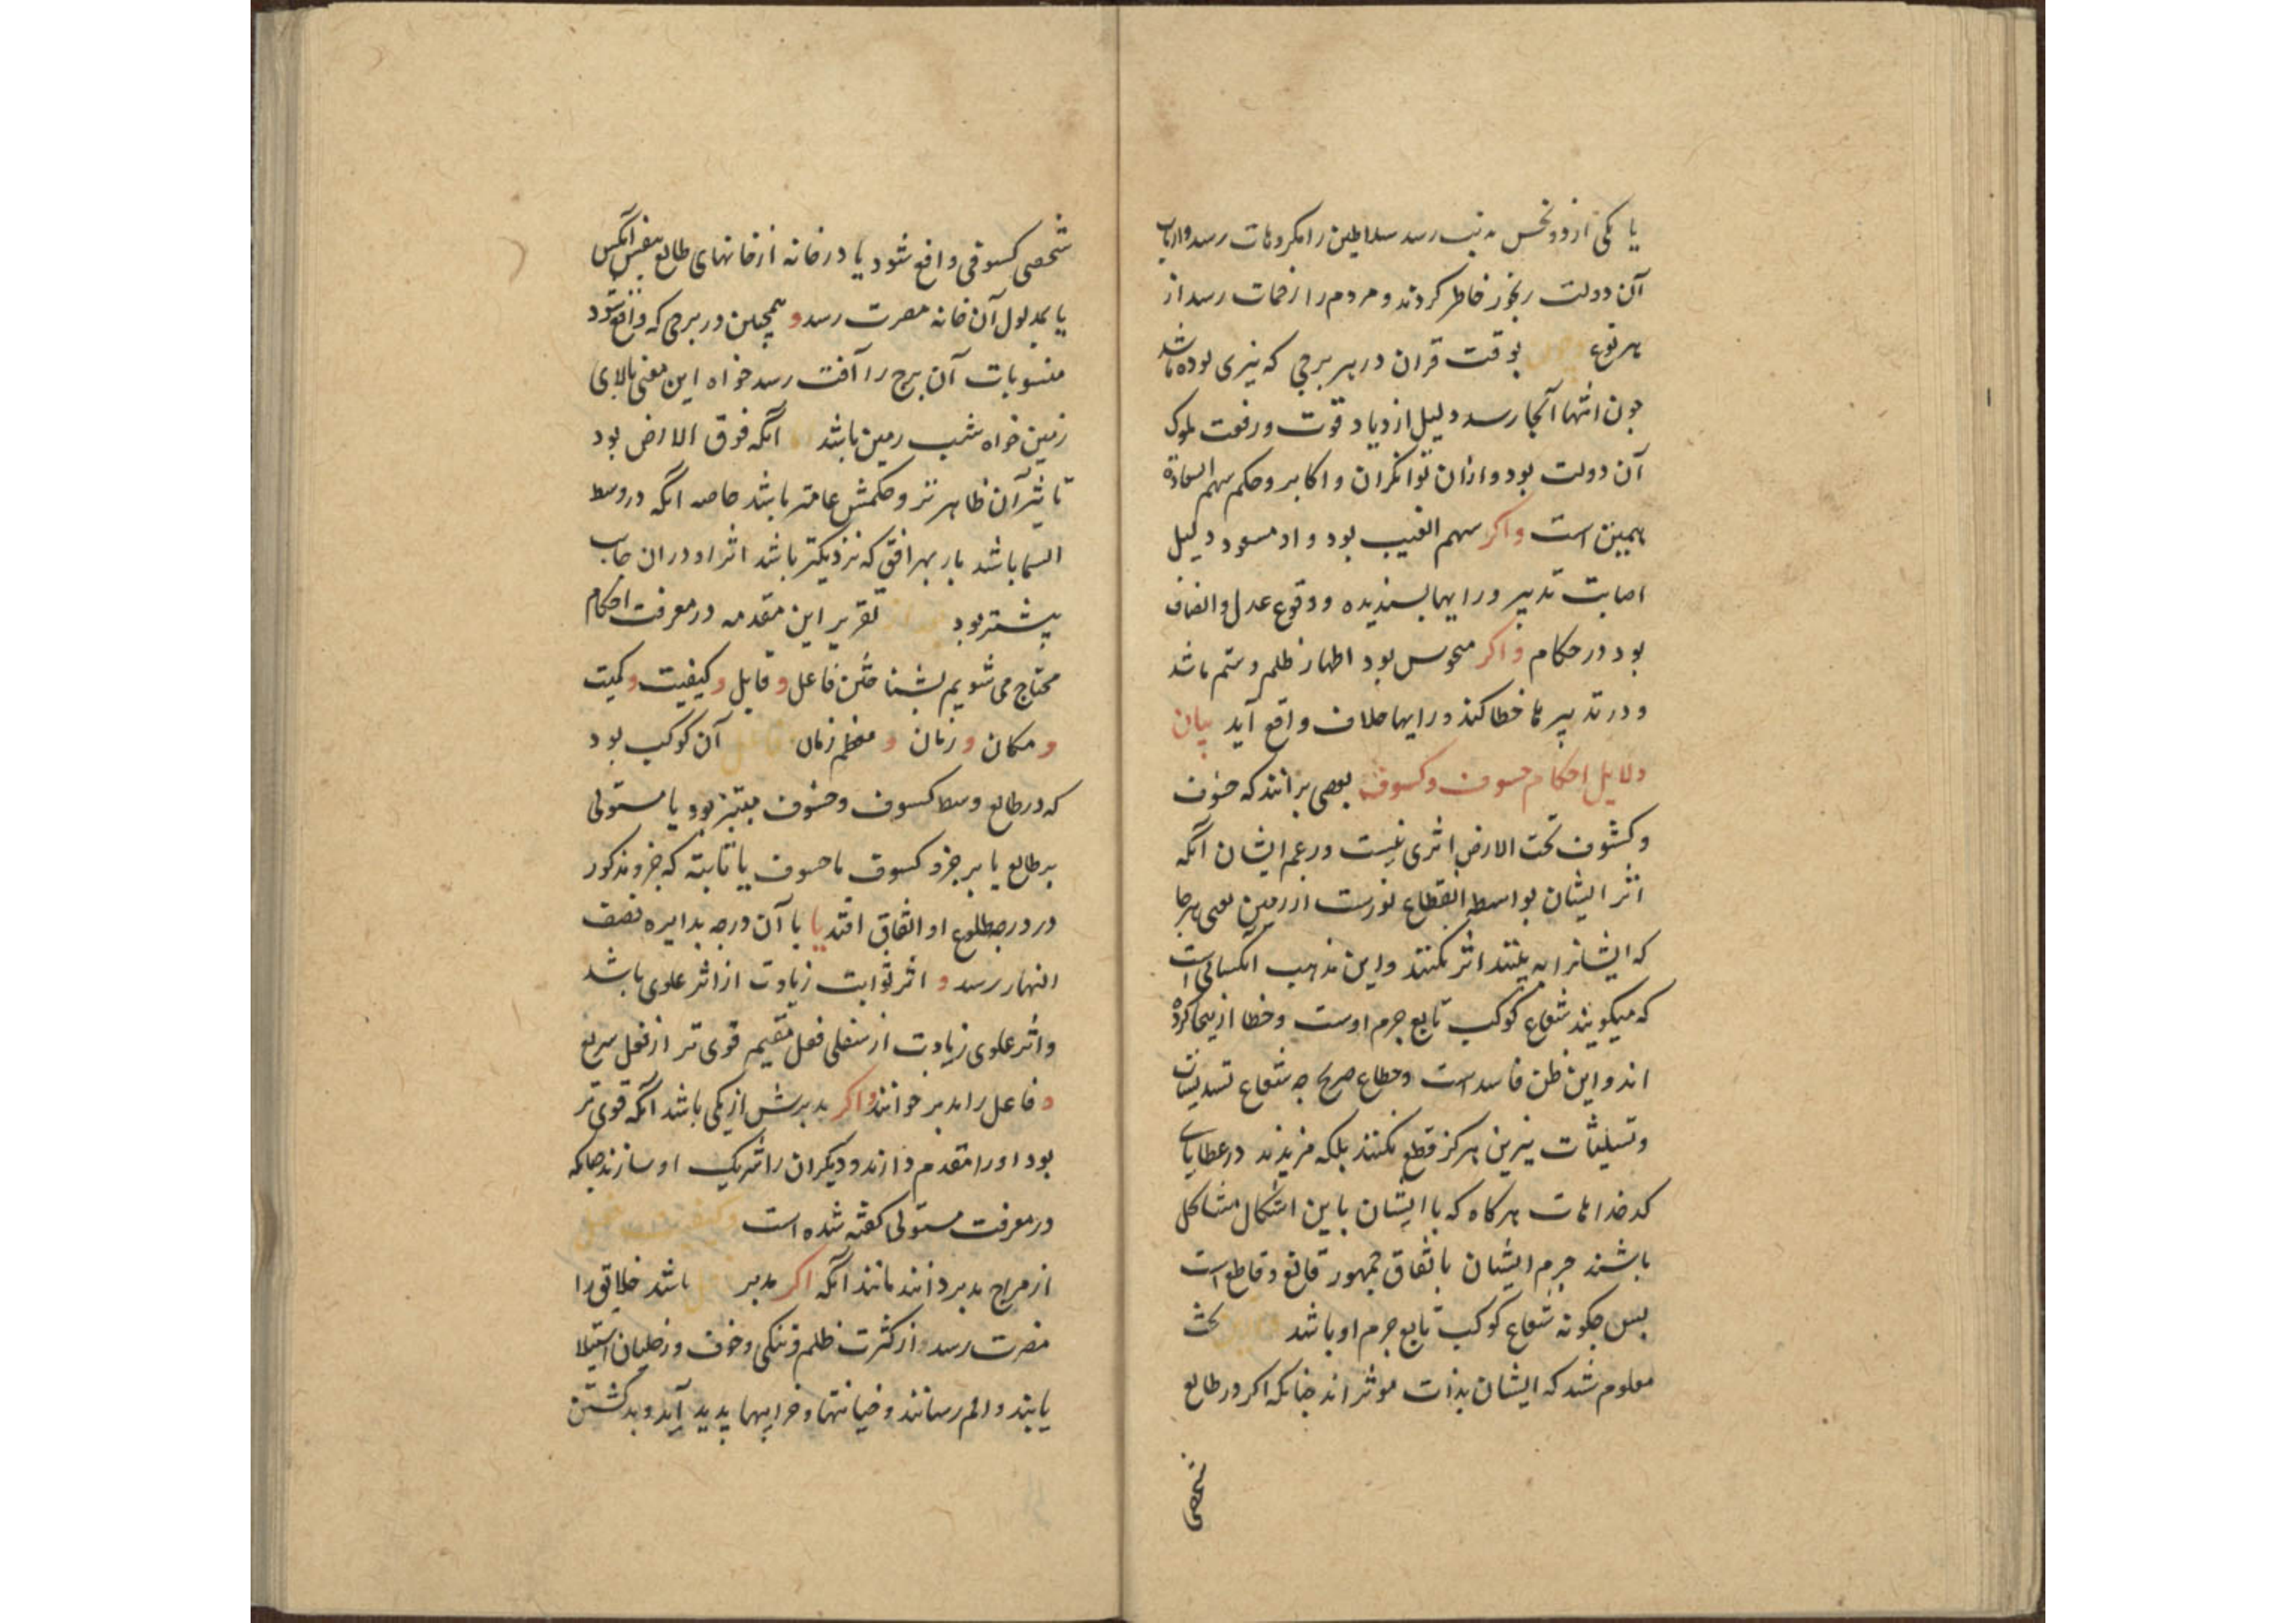 یا یکی از دو نحس به نیب رسد سلاطین را مکروهات رسد وارباب
آن دولت رنجور خاطر کردند و مردم را زحمات رسد از
هر نوع بوقت قران در هر برجی که نیری بوده باشد
چون انتها آنجا رسد دلیل ازدیاد قوت و رفعت ملوک
آن دولت بود وازان توانکران و اکابر وحکم سهم السعادة
همین است واکر سهم الغیب بود و او مسعود دلیل
اصابت تدبیر و رایها پسندیده و وقوع عدل وانصاف
بود در حکام واکر منحوس بود اظهار ظلم وستم باشد
و در تدبیر ها خطا کند و رایها خلاف واقع آید بیان
دلایل احکام خسوف وکسوف بعضی برانند که خسوف
وکسوف تحت الارض اثری نیست و زعم ایشان آنکه
اثر ایشان بواسطه انقطاع نورست از زمین یعنی هر جا
که ایشانرا نه بینند اثر نکنند واین مذهب آنکسانی است
که میکویند شعاع کوکب تابع جرم اوست وخطا ازینجا کرده
اند واین ظن فاسد است وخطاء صریح چه شعاع تسدیسات
وتثلیثات نیرین هرکز قطع نکنند بلکه مزیدند در عطایای
کدخداهات هرکاه که با ایشان باین اشکال متشاکل
باشند جرم ایشان باتفاق جمهور قانع وقاطع است
پس چکونه شعاع کوکب تابع جرم او باشد بحث
معلوم شد که ایشان بذات موثر اند چنانکه اکر در طالع
شخصی
شخصی کسوفی واقع شود یا در خانه از خانهای طالع بنفس آنکس
یا بمدلول آن خانه مضرت رسد و همچنین در برجی که واقع شود
منسوبات آن برج را آفت رسد خواه این معنی بالای
زمین خواه شیب زمین باشد آنکه فوق الارض بود
تاثیر آن ظاهر تر وحکمش عامتر باشد خاصه آنکه در وسط
السما باشد باز بهر افق که نزدیکتر باشد اثر او در ان جانب
بیشتر بود تقریر این مقدمه در معرفت احکام
محتاج می شویم بشناختن فاعل و قابل و کیفیت و کمیت
و مکان و زمان و معظم زمان فاعل آن کوکب بود
که در طالع وسط کسوف وخسوف مبتز بود یا مستولی
بر طالع یا بر جزو کسوف یا خسوف یا ثابته که جزو مذکور
در درجه طلوع او اتفاق افتد یا با آن درجه بدایره نصف
النهار رسد و اثر ثوابت زیادت از اثر علوی باشد
واثر علوی زیادت از سفلی فعل مقیم قوی تر از فعل سریع
و فاعل را مدبر خوانند واکر مدبرش از یکی باشد آنکه قوی تر
بود او را مقدم دارند و دیکران را شریک او سازند چنانکه
در معرفت مستولی کفته شده است
از مزاج مدبر دانند مانند آنکه اکر مدبر زحل باشد خلایق را
مضرت رسد از کثرت ظلم وتنکی وخوف وزحلیان استیلا
یابند والم رسانند وخیانتها وخرابیها پدید آید و بد کشتن